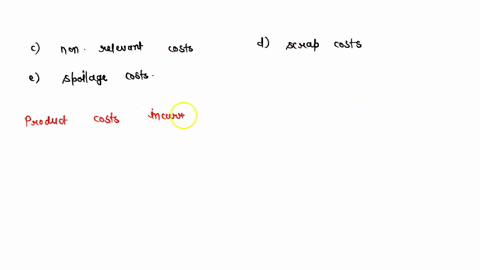 c) non. relevant costs
d) scrap costs
e) spoilage costs.
Product costs incurr